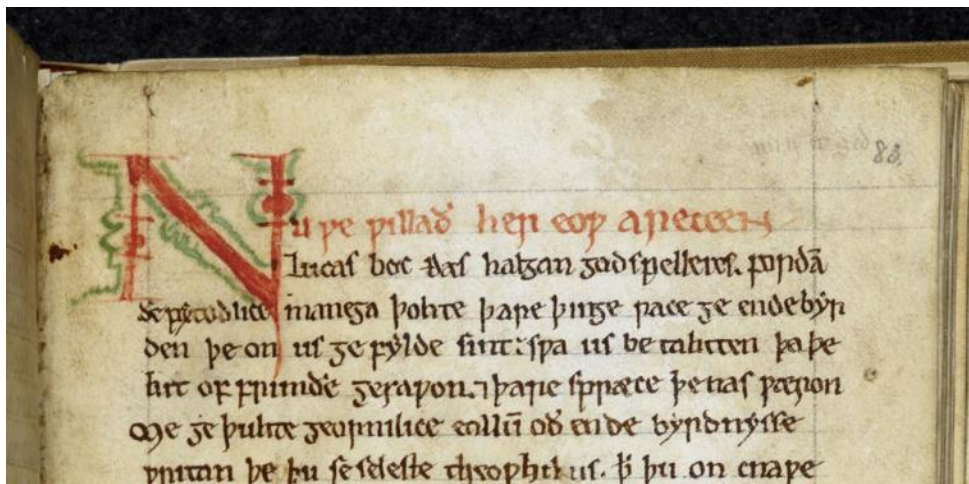 83.
Nu ƿe ƿillað her eoƿ areccen
Lucas boc ðas halgan godspelleres. forðā
ðe ƿytodlice manega þohte þare þinge race ge endebyr
den þe on us ge fylde sint: sƿa us be tahtten þa þe
hit of frumðe gesaƿon. ⁊ þare spræce þenas ƿæron
Me ge þuhte geornlice eallū oð ende byrdnysse
ƿritan þe þu se seleste theophilus. ꝥ þu on cnaƿe